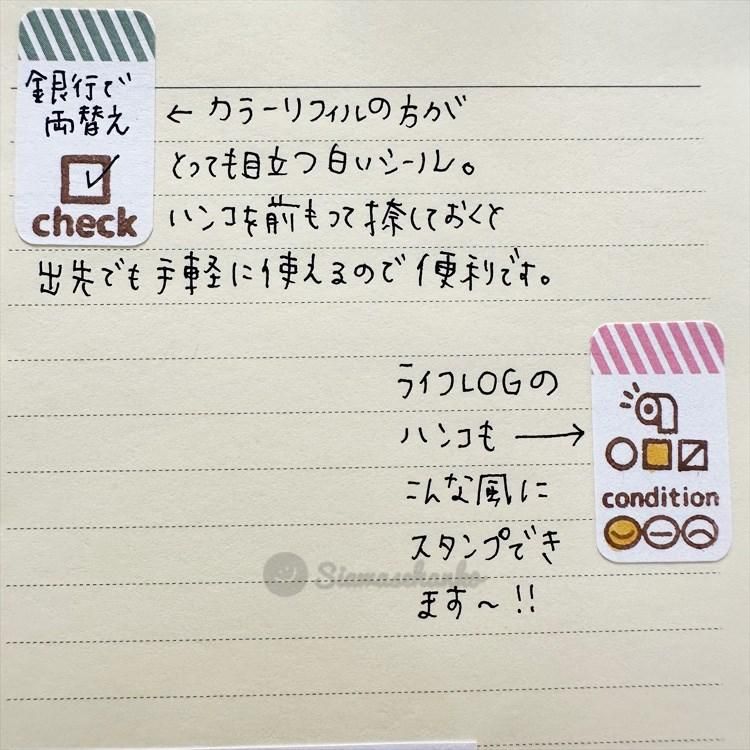 銀行で
両替え
check
← カラーリフィルの方が
とっても目立つ白いシール。
ハンコを前もって捺しておくと
出先でも手軽に使えるので便利です。
ライフLOGの
ハンコも →
こんな風に
スタンプでき
ます〜!!
condition
Siawasehanko